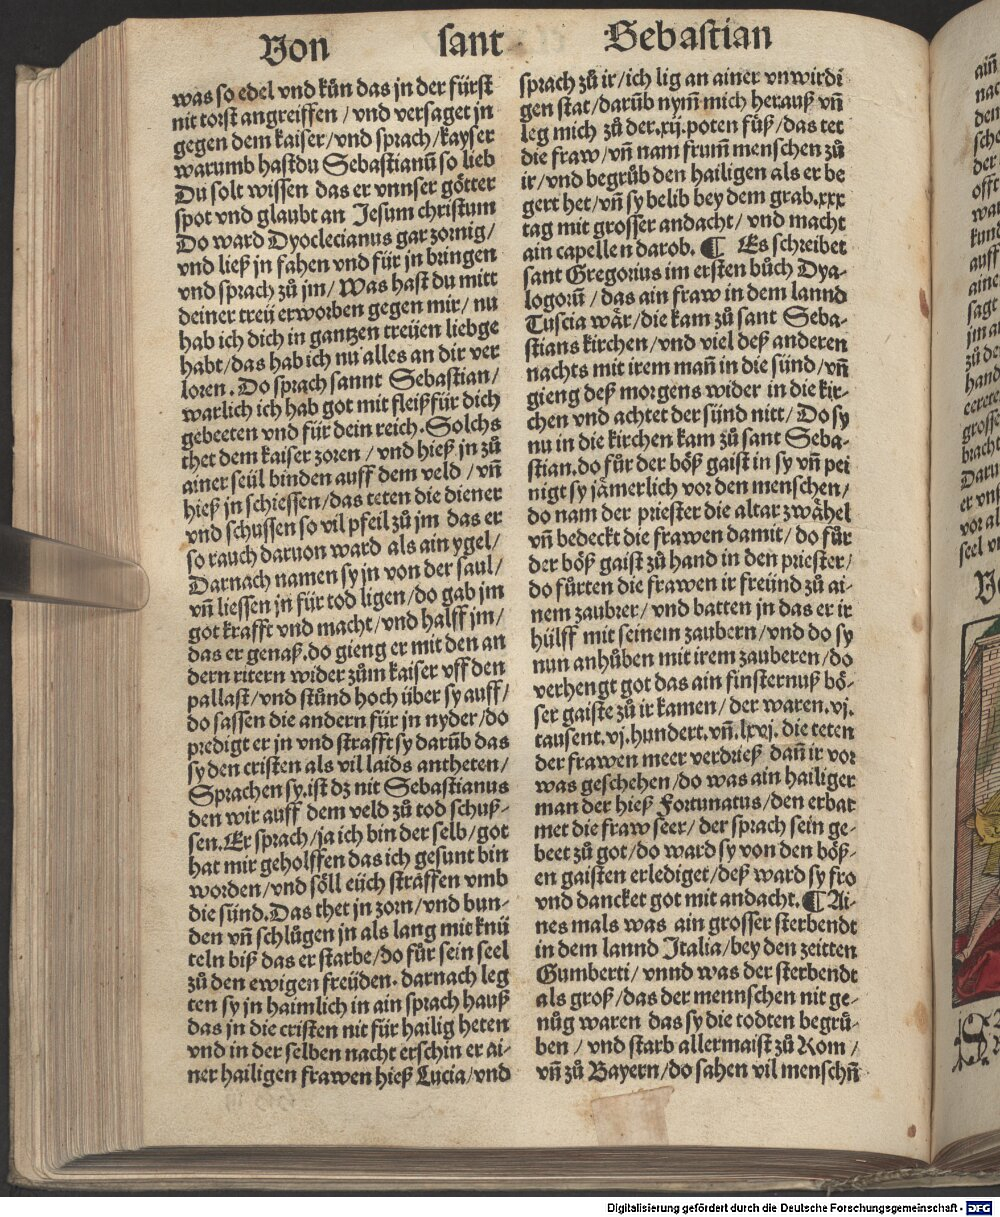 Von sant Sebastian
was so edel vnd kün das jn der fürst
nit torst angreiffen / vnd versaget jn
gegen dem kaiser / vnd sprach / kayser
warumb hastdu Sebastianū so lieb
Du solt wissen das er vnnser götter
spot vnd glaubt an Jesum christum
Do ward Dyoclecianus gar zornig /
vnd ließ jn fahen vnd für jn bringen
vnd sprach zů jm / Was hast du mitt
deiner treü erworben gegen mir / nu
hab ich dich in gantzen treüen liebge
habt / das hab ich nu alles an dir ver
loren. Do sprach sannt Sebastian /
warlich ich hab got mit fleiß für dich
gebeeten vnd für dein reich. Solchs
thet dem kaiser zoren / vnd hieß jn zů
ainer seül binden auff dem veld / vñ
hieß jn schiessen / das teten die diener
vnd schussen so vil pfeil zů jm das er
so rauch daruon ward als ain ygel /
Darnach namen sy jn von der saul /
vñ liessen jn für tod ligen / do gab jm
got krafft vnd macht / vnd halff jm /
das er genaß. do gieng er mit den an
dern ritern wider zům kaiser vff den
pallast / vnd stůnd hoch über sy auff /
do sassen die andern für jn nyder / do
predigt er jn vnd strafft sy darūb das
sy den cristen als vil laids antheten /
Sprachen sy. ist dz nit Sebastianus
den wir auff dem veld zů tod schuß-
sen. Er sprach / ja ich bin der selb / got
hat mir geholffen das ich gesunt bin
worden / vnd söll eüch straffen vmb
die sünd. Das thet jn zorn / vnd bun-
den vñ schlůgen jn als lang mit knü
teln biß das er starbe / do für sein seel
zů den ewigen freüden. darnach leg
ten sy jn haimlich in ain sprach hauß
das jn die cristen nit für hailig heten
vnd in der selben nacht erschin er ai-
ner hailigen frawen hieß Lucia / vnd
sprach zů ir / ich lig an ainer vnwirdi
gen stat / darūb nym̄ mich herauß vñ
leg mich zů der .xij. poten füß / das tet
die fraw / vñ nam frum̄ menschen zů
ir / vnd begrůb den hailigen als er be
gert het / vñ sy belib bey dem grab .xxx
tag mit grosser andacht / vnd macht
ain capellen darob. ¶ Es schreibet
sant Gregorius im ersten bůch Dya-
logorū / das ain fraw in dem lannd
Tuscia wär / die kam zů sant Seba-
stians kirchen / vnd viel deß anderen
nachts mit irem mañ in die sünd / vñ
gieng deß morgens wider in die kir-
chen vnd achtet der sünd nitt / Do sy
nu in die kirchen kam zů sant Seba-
stian. do für der böß gaist in sy vñ pei
nigt sy jämerlich vor den menschen /
do nam der priester die altar zwähel
vñ bedeckt die frawen damit / do für
der böß gaist zů hand in den priester /
do fůrten die frawen ir freünd zů ai-
nem zaubrer / vnd batten jn das er ir
hülff mit seinem zaubern / vnd do sy
nun anhůben mit irem zauberen / do
verhengt got das ain finsternuß bö-
ser gaiste zů ir kamen / der waren .vj.
tausent .vj. hundert. vñ .lxvj. die teten
der frawen meer verdrieß dañ ir vor
was geschehen / do was ain hailiger
man der hieß Fortunatus / den erbat
met die fraw seer / der sprach sein ge-
beet zů got / do ward sy von den böß-
en gaisten erlediget / deß ward sy fro
vnd dancket got mit andacht. ¶ Ai-
nes mals was ain grosser sterbendt
in dem lannd Italia / bey den zeitten
Gumberti / vnnd was der sterbendt
als groß / das der mennschen nit ge-
nůg waren das sy die todten begrů-
ben / vnd starb allermaist zů Rom /
vñ zů Bayern / do sahen vil menschñ
Digitalisierung gefördert durch die Deutsche Forschungsgemeinschaft - DFG